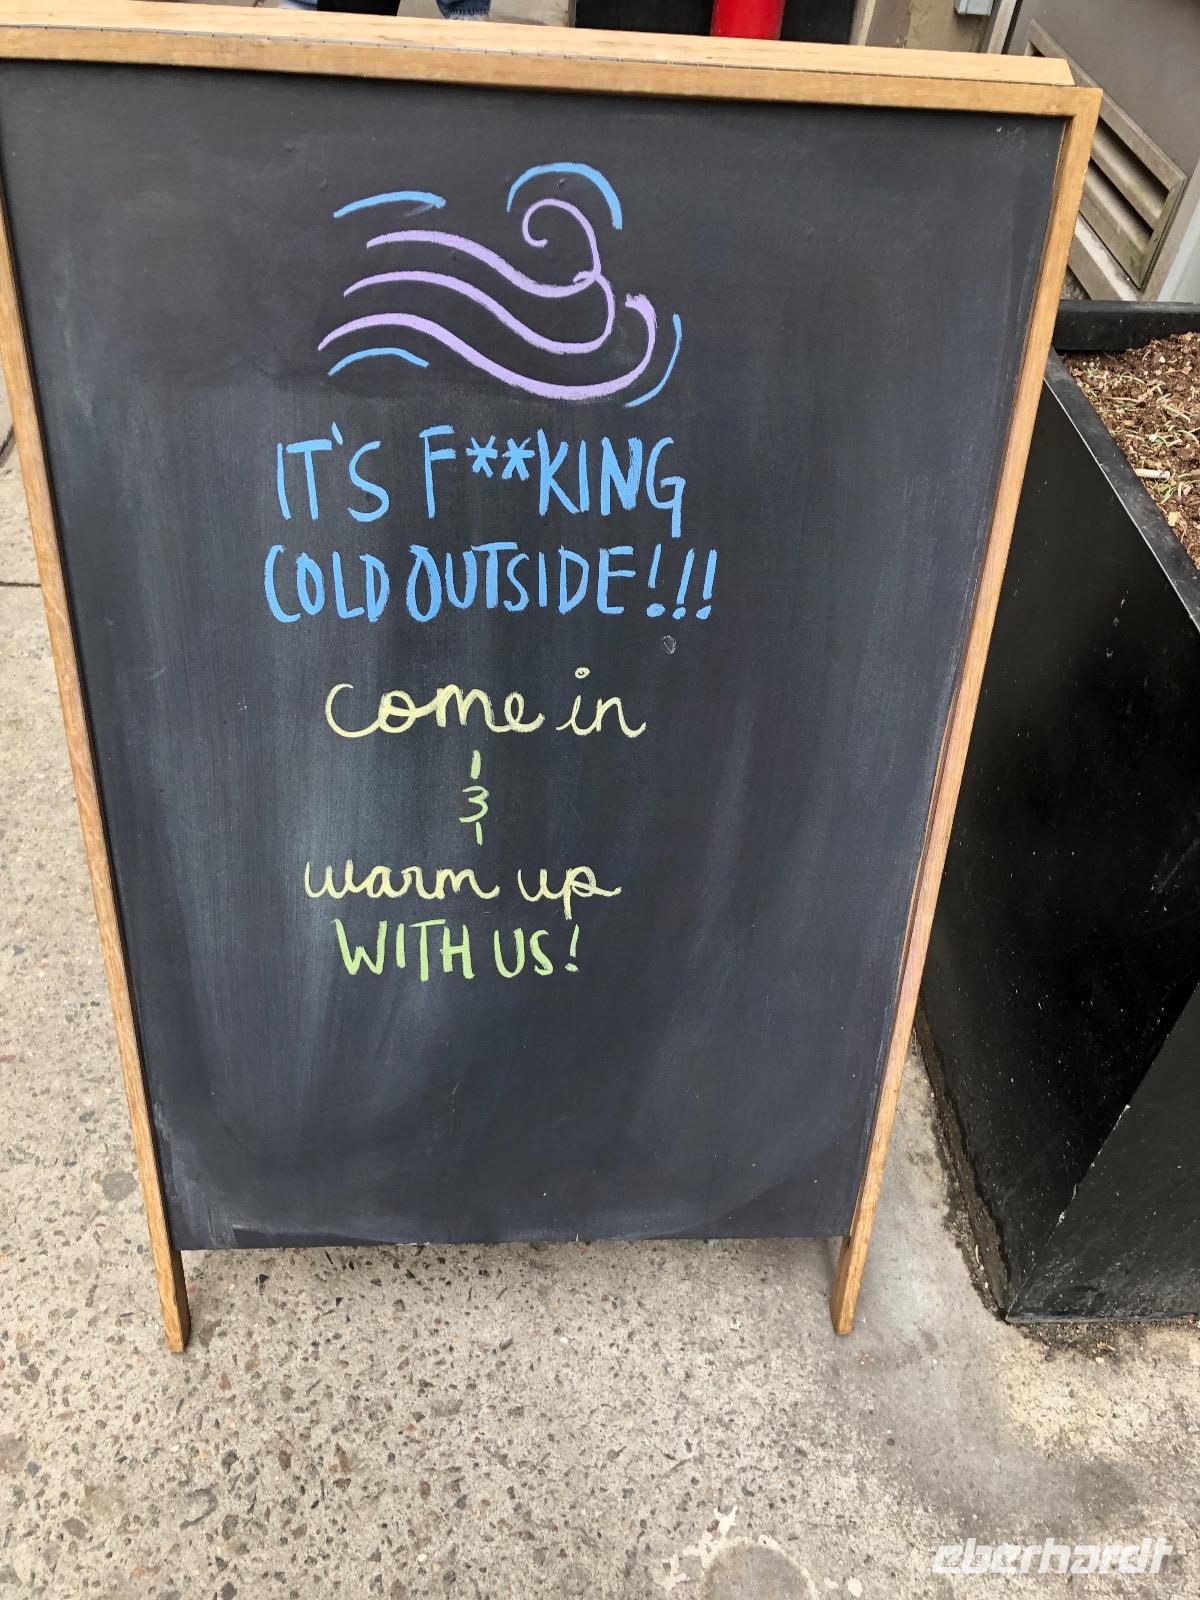 IT'S F**KING
COLD OUTSIDE!!!
come in
&
warm up
WITH US!
eberhardt